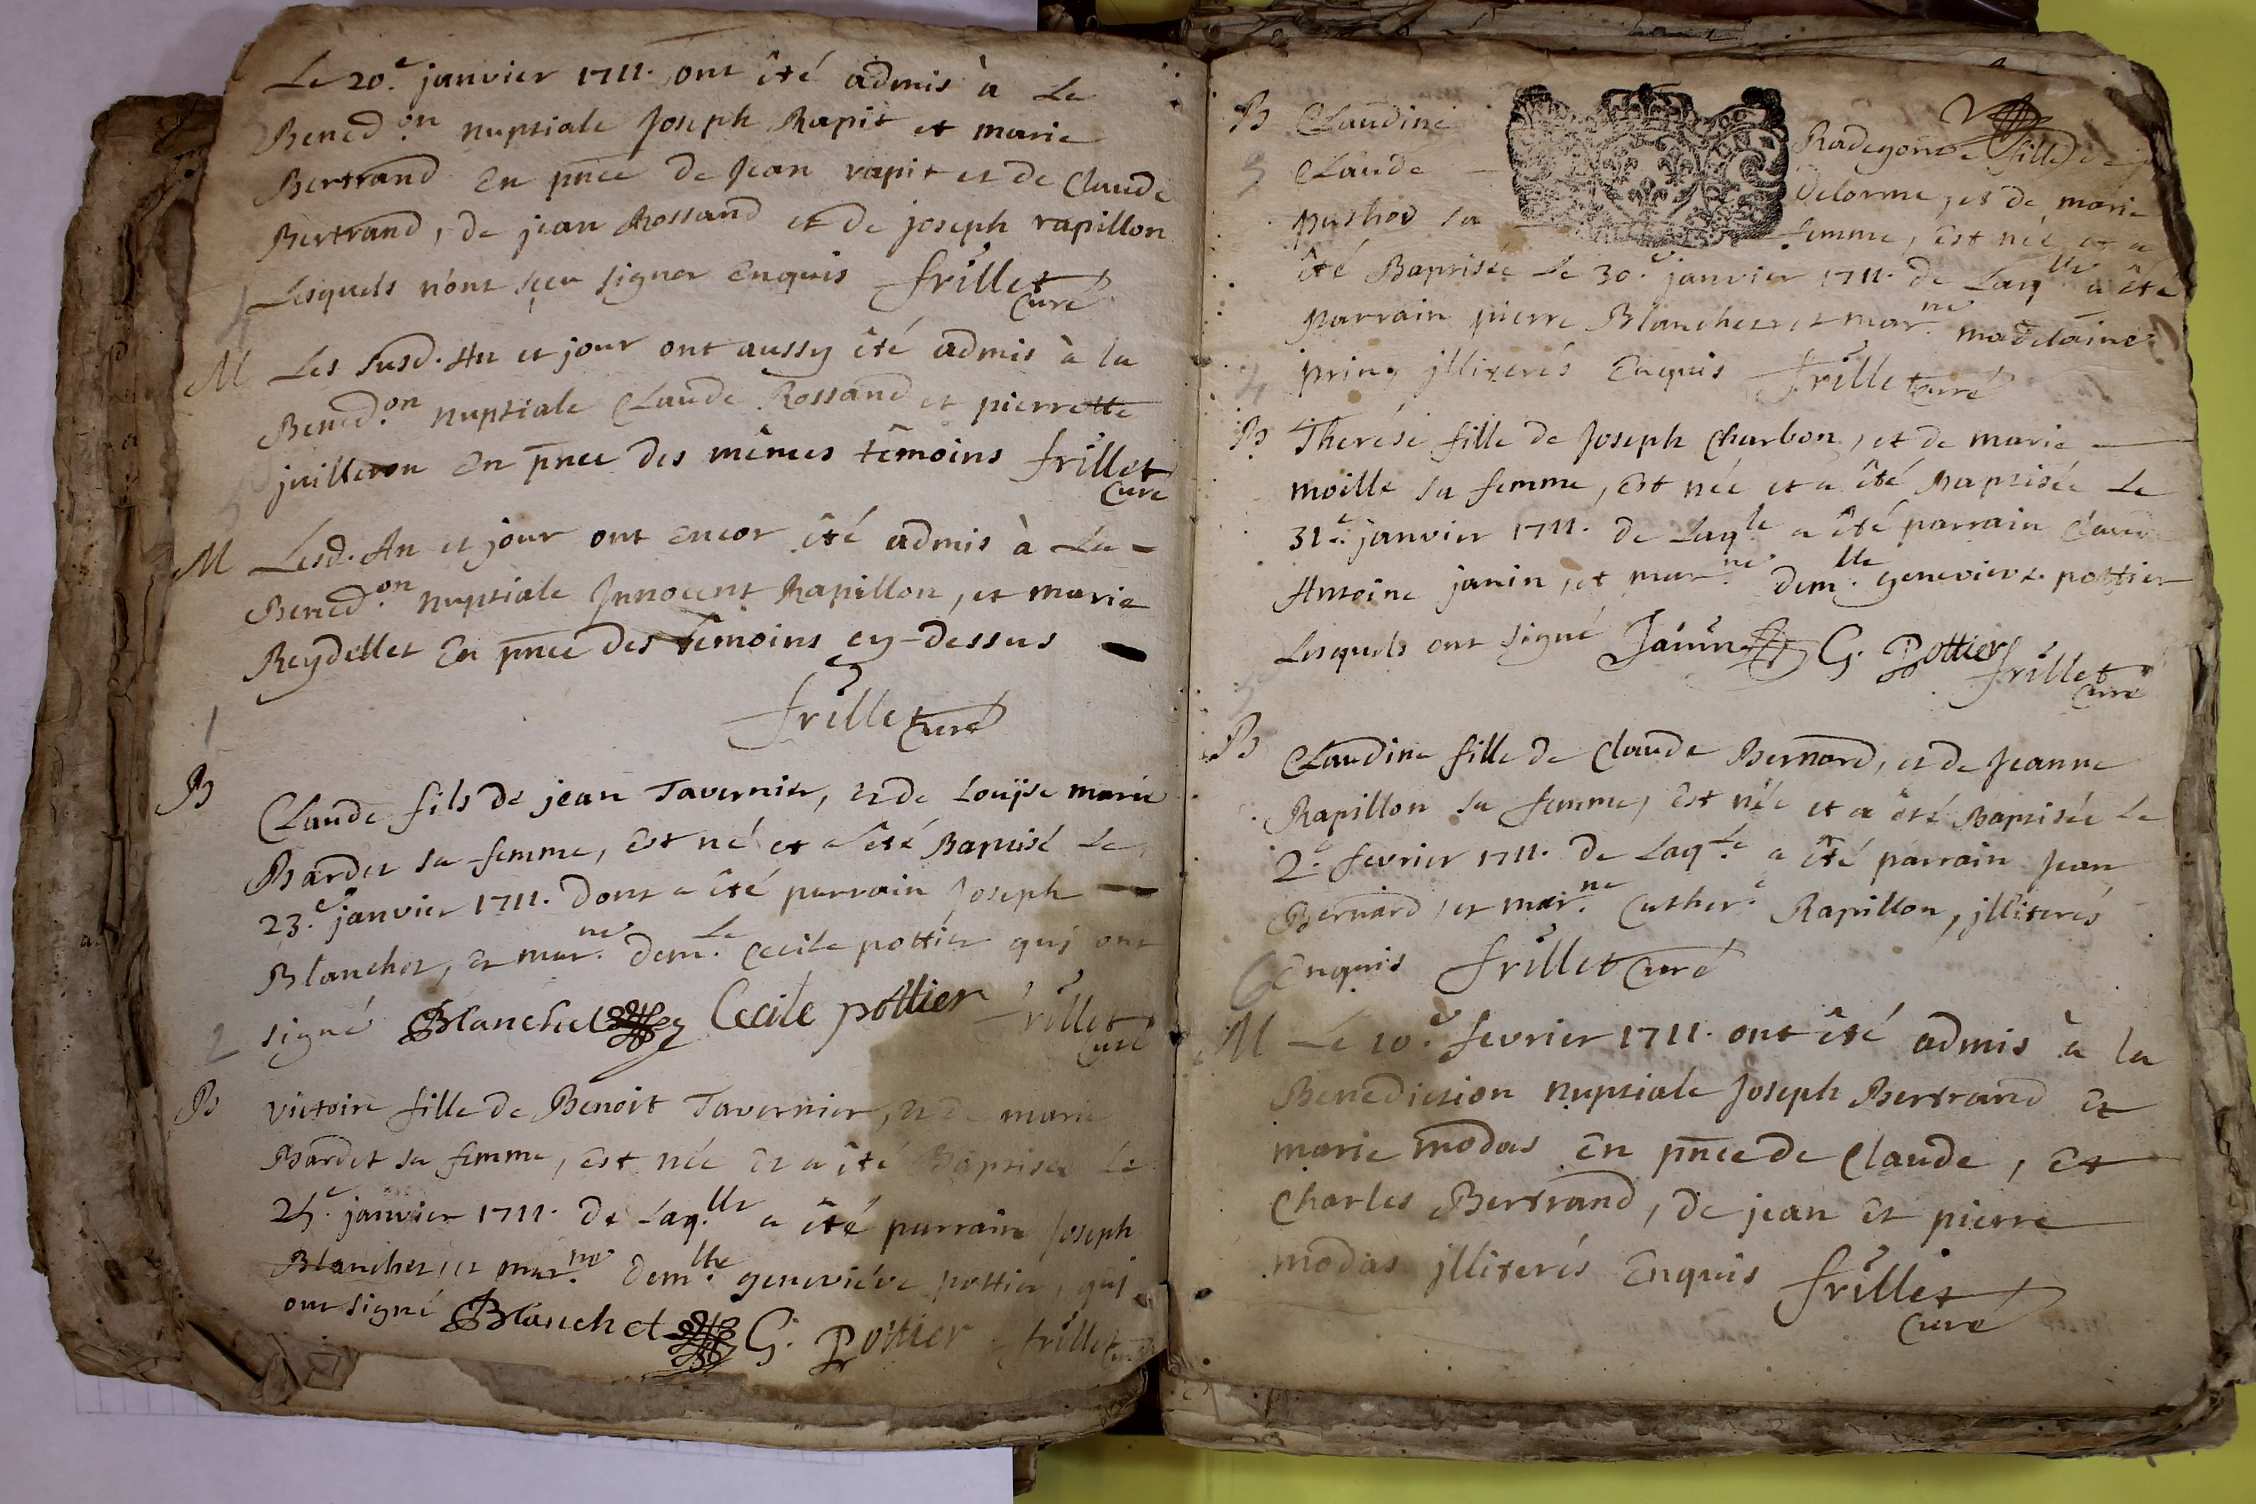 Le 20.e janvier 1711. ont êté admis à La
Bened.on nuptiale Joseph Rapit et marie
Bertrand En pnce de Jean rapit et de Claude
Bertrand, de jean Rossand et de joseph rapillon
Lesquels n'ont sçeu signer Enquis frillet
Curé
M Les susd. An et jour ont aussy êté admis à la
Bened.on nuptiale Claude Rossand et pierrette
juilleron En pnce des mêmes têmoins frillet
Curé
M Lesd. An et jour ont encor êté admis à La
Bened.on nuptiale Jnnocent Rapillon, et marie
Reydellet En pnce des têmoins cy-dessus
frillet Curé
1
B Claude fils de jean Tavernier, et de Louïse marie
Bardet sa femme, Est né et a êté Baptisé Le
23.e janvier 1711. dont a êté parrain Joseph
Blanchet, et mar.ne dem.le Cecile pottier quj ont
signé Blanchet Cecile pottier frillet
Curé
2
B victoire fille de Benoit Tavernier, et de marie
Bardet sa femme, est née et a êté Baptisée Le
25.e janvier 1711. de Laq.lle a êté parrain Joseph
Blanchet, et mar.ne dem.lle geneviéve pottier, quj
ont signé Blanchet G. Pottier frillet Curé
B Claudine Radegonde fille de
3 Claude Delorme, et de marie
sa femme, est née et a
êté Baptisée Le 30.e janvier 1711. de Laq.lle a êté
parrain pierre Blanchet et mar.ne madelaine
jlliterés Enquis frillet Curé
4
B Therése fille de Joseph Charbon, et de marie
moille sa femme, Est née et a êté Baptisée Le
31.e janvier 1711. de Laq.le a êté parrain Claude
Antoine janin, et mar.ne dem.lle genevieve pottier
Lesquels ont signé Janin G. Pottier frillet
Curé
5
B Claudine fille de Claude Bernard, et de Jeanne
Rapillon sa femme, Est née et a êté Baptisée Le
2.e fevrier 1711. de Laq.le a êté parrain Jean
Bernard, et mar.ne Cather.e Rapillon, jlliterés
6 Enquis frillet Curé
M Le 10.e fevrier 1711. ont êté admis à la
Benediction nuptiale Joseph Bertrand et
marie modas en pnce de Claude, et
Charles Bertrand, de jean et pierre
modas jlliterés Enquis frillet
Curé